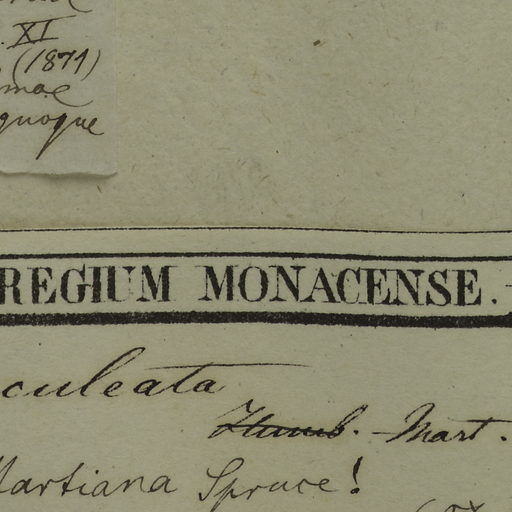 XI
(1871)
mae
quoque
REGIUM MONACENSE.
culeata
Humb. - Mart.
Martiana Spruce!